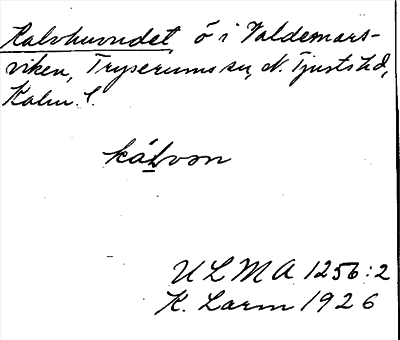 Kalvhuvudet, ö i Valdemars-
viken, Tryserums sn, N. Tjusts hd,
Kalm. l.
kál̲vən
ULMA 1256:2
K. Larm 1926